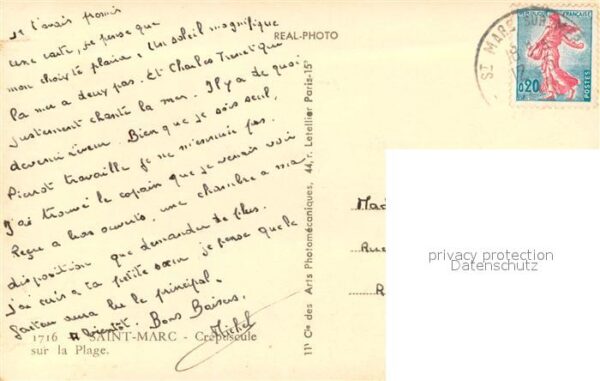 Je t'avais promis
une carte, je pense que
mon choix te plaira. Un soleil magnifique
la mer a deux pas. Et Charles Trenet qui
justement chante la mer. Il y a de quoi
devenir rêveur. Bien que je sois seul,
Pierrot travaille je ne m'ennuie pas.
J'ai trouvé le copain que je venais voir
Reçu a bras ouverts, une chambre a ma
disposition que demander de plus.
J'ai écris a ta petite sœur je pense que le
aura lu le principal.
a bientôt. Bons Baisers.
Michel
1716 - SAINT-MARC - Crépuscule
sur la Plage.
REAL-PHOTO
11' Cie des Arts Photomécaniques, 44, r. Letellier Paris-15e
ST MARC SUR
FRANÇAISE
0,20
POSTES
Mad
Rue
R
privacy protection
Datenschutz